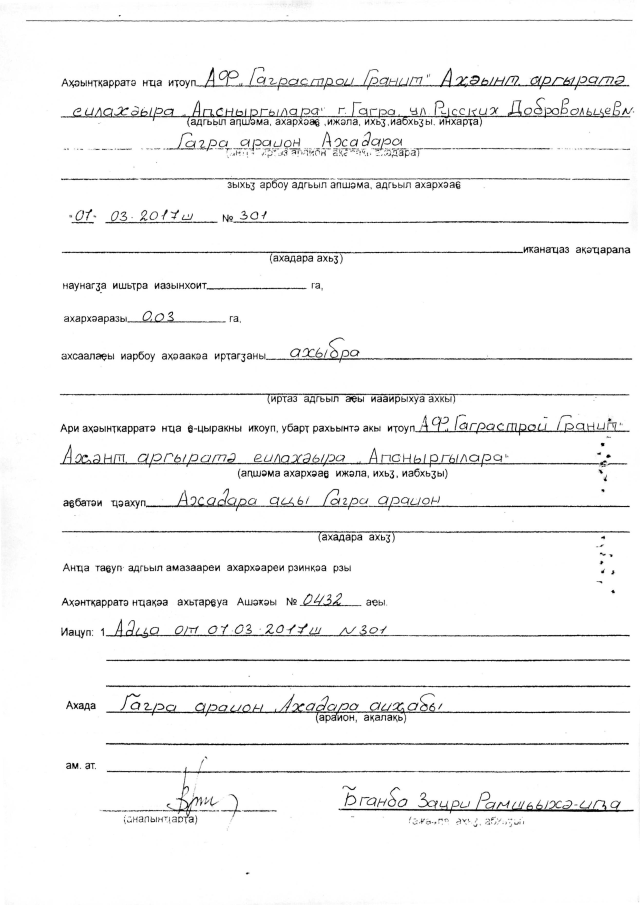 Аҳәынҭқарратә нҵа иҭоуп АФ „Гаграстрой Гранит" Аҳәынҭ. аргыратә
еилахәыра „Аԥсныргылара" г. Гагра, ул Русских Добровольцев №
(адгьыл аԥшәма, ахархәаҩ, ижәла, ихьӡ, иабхьӡы, инхарҭа)
Гагра араион Ахадара
зыхьӡ арбоу адгьыл аԥшәма, адгьыл ахархәаҩ
"01" 03-2017ш № 301
иҟанаҵаз ақәҵарала
(ахадара ахьӡ)
наунагӡа ишьҭра иазынхоит га,
ахархәаразы 0,03 га,
ахсаалаҿы иарбоу аҳәаақәа ирҭагӡаны ахыбра
(ирҭаз адгьыл аҿы иааирыхуа ахкы)
Ари аҳәынҭқарратә нҵа ҩ-цыракны иҟоуп, убарҭ рахьынтә акы иҭоуп АФ „Гаграстрой Гранит"
Аҳәнҭ аргыратә еилахәыра „Аԥсныргылара"
(аԥшәма ахархәаҩ ижәла, ихьӡ, иабхьӡы)
аҩбатәи ҵәахуп Ахадара аҿы Гагра араион
(ахадара ахьӡ)
Анҵа ҭаҩуп адгьыл амазаареи ахархәареи рзинқәа рзы
Аҳәнҭқарратә нҵақәа ахьҭарҩуа Ашәҟәы № 0432 аҿы.
Иаҵуп: 1 Адҵа от 01.03-2017ш №301
Ахада Гагра араион Ахадара аиҳабы
(араион, ақалақь)
ам. аҭ.
(анапынҵарҭа)